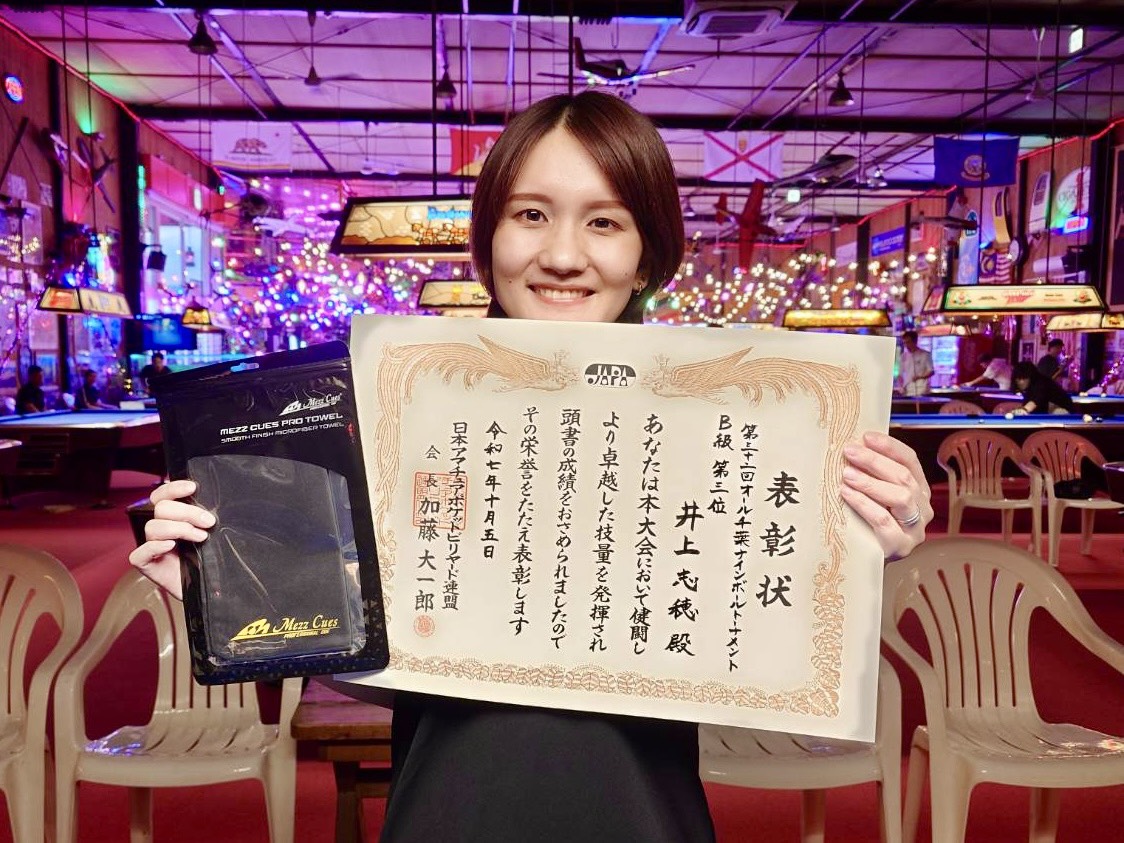 表彰状
第三十一回オール千葉ナインボールトーナメント
B級 第三位
井上志穂殿
あなたは本大会において健闘し
より卓越した技量を発揮され
頭書の成績をおさめられましたので
その栄誉をたたえ表彰します
令和七年十月五日
日本アマチュアポケットビリヤード連盟
会長 加藤大一郎
JAPA
Mezz Cues
MEZZ CUES PRO TOWEL
SMOOTH FINISH MICROFIBER TOWEL
Mezz Cues